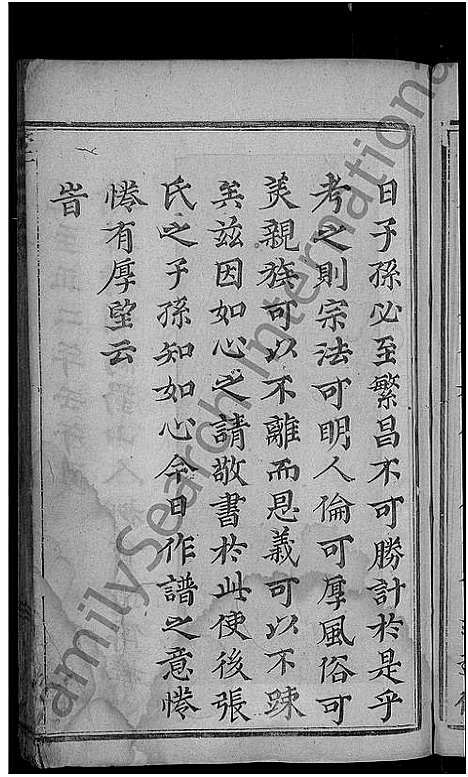 日子孫必至繁昌不可勝計於是乎
考之則宗法可明人倫可厚風俗可
美親族可以不離而恩義可以不踈
矣兹因如心之請敬書於此使後張
氏之子孫知如心今日作譜之意惓
惓有厚望云
旹
FamilySearch International